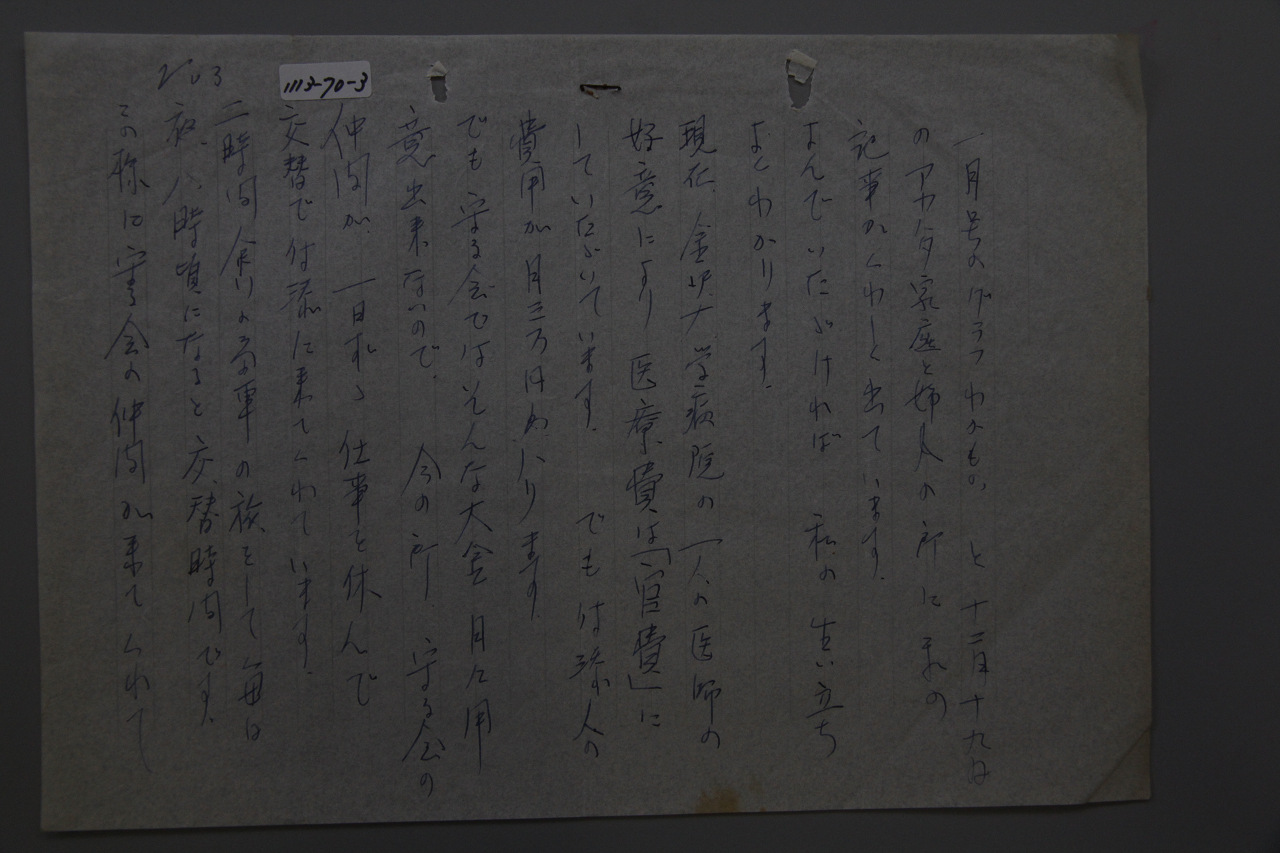 1113-70-3
No3
一月号のグラフわかもの、と十二月十九日
のアカハタ家庭と婦人の所に私の
記事がくわしく出ています。
よんでいただければ 私の生い立ち
よくわかります。
現在、金沢大学病院の一人の医師の
好意により 医療費は「官費」に
していただいています。 でも付添人の
費用が月三万円め入ります
でも守る会ではそんな大金 月々用
意出来ないので、 今の所 守る会の
仲間が、一日ずつ 仕事を休んで
交替で付添に来てくれています。
二時間余りの電車の旅をして毎日
夜、八時頃になると交替時間です。
この様に守る会の仲間が来てくれて